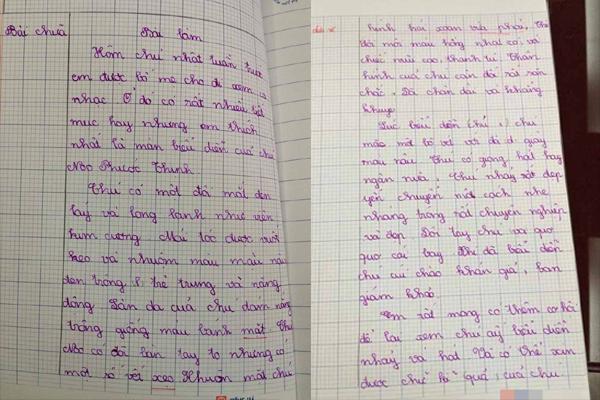 Bài chữa
Bài làm
Hôm chủ nhật tuần trước
em được bố mẹ cho đi xem ca
nhạc. Ở đó có rất nhiều tiết
mục hay nhưng em thích
nhất là màn biểu diễn của chú
Noo Phước Thịnh.
Chú có một đôi mắt đen
láy và long lanh như viên
kim cương. Mái tóc được vuốt
keo và nhuộm màu
đen trông trẻ trung và năng
động. Làn da của chú
trông giống màu bánh mật. Chú
Noo có đôi bàn tay to nhưng có
một số vết xẹo. Khuôn mặt chú
hình trái xoan vừa phải,
đôi môi màu hồng nhạt có
chiếc mũi cao, thanh tú. Thân
hình của chú cân đối rất săn
chắc. Đôi chân dài và khẳng
khuỷu.
Lúc biểu diễn, chú
mặc một bộ vét với đôi giày
màu nâu. Chú có giọng hát hay
ngân nga. Chú nhảy rất đẹp
chuyển một cách nhẹ
nhàng trông rất chuyên nghiệp
và đẹp. Đôi tay chú
Khi đã biểu diễn
chú cúi chào khán giả, ban
giám khảo.
Em rất mong có thêm cơ hội
để lại xem chú ấy biểu diễn
nhảy và hát. Và có thể xin
được chữ kí quá của chú.